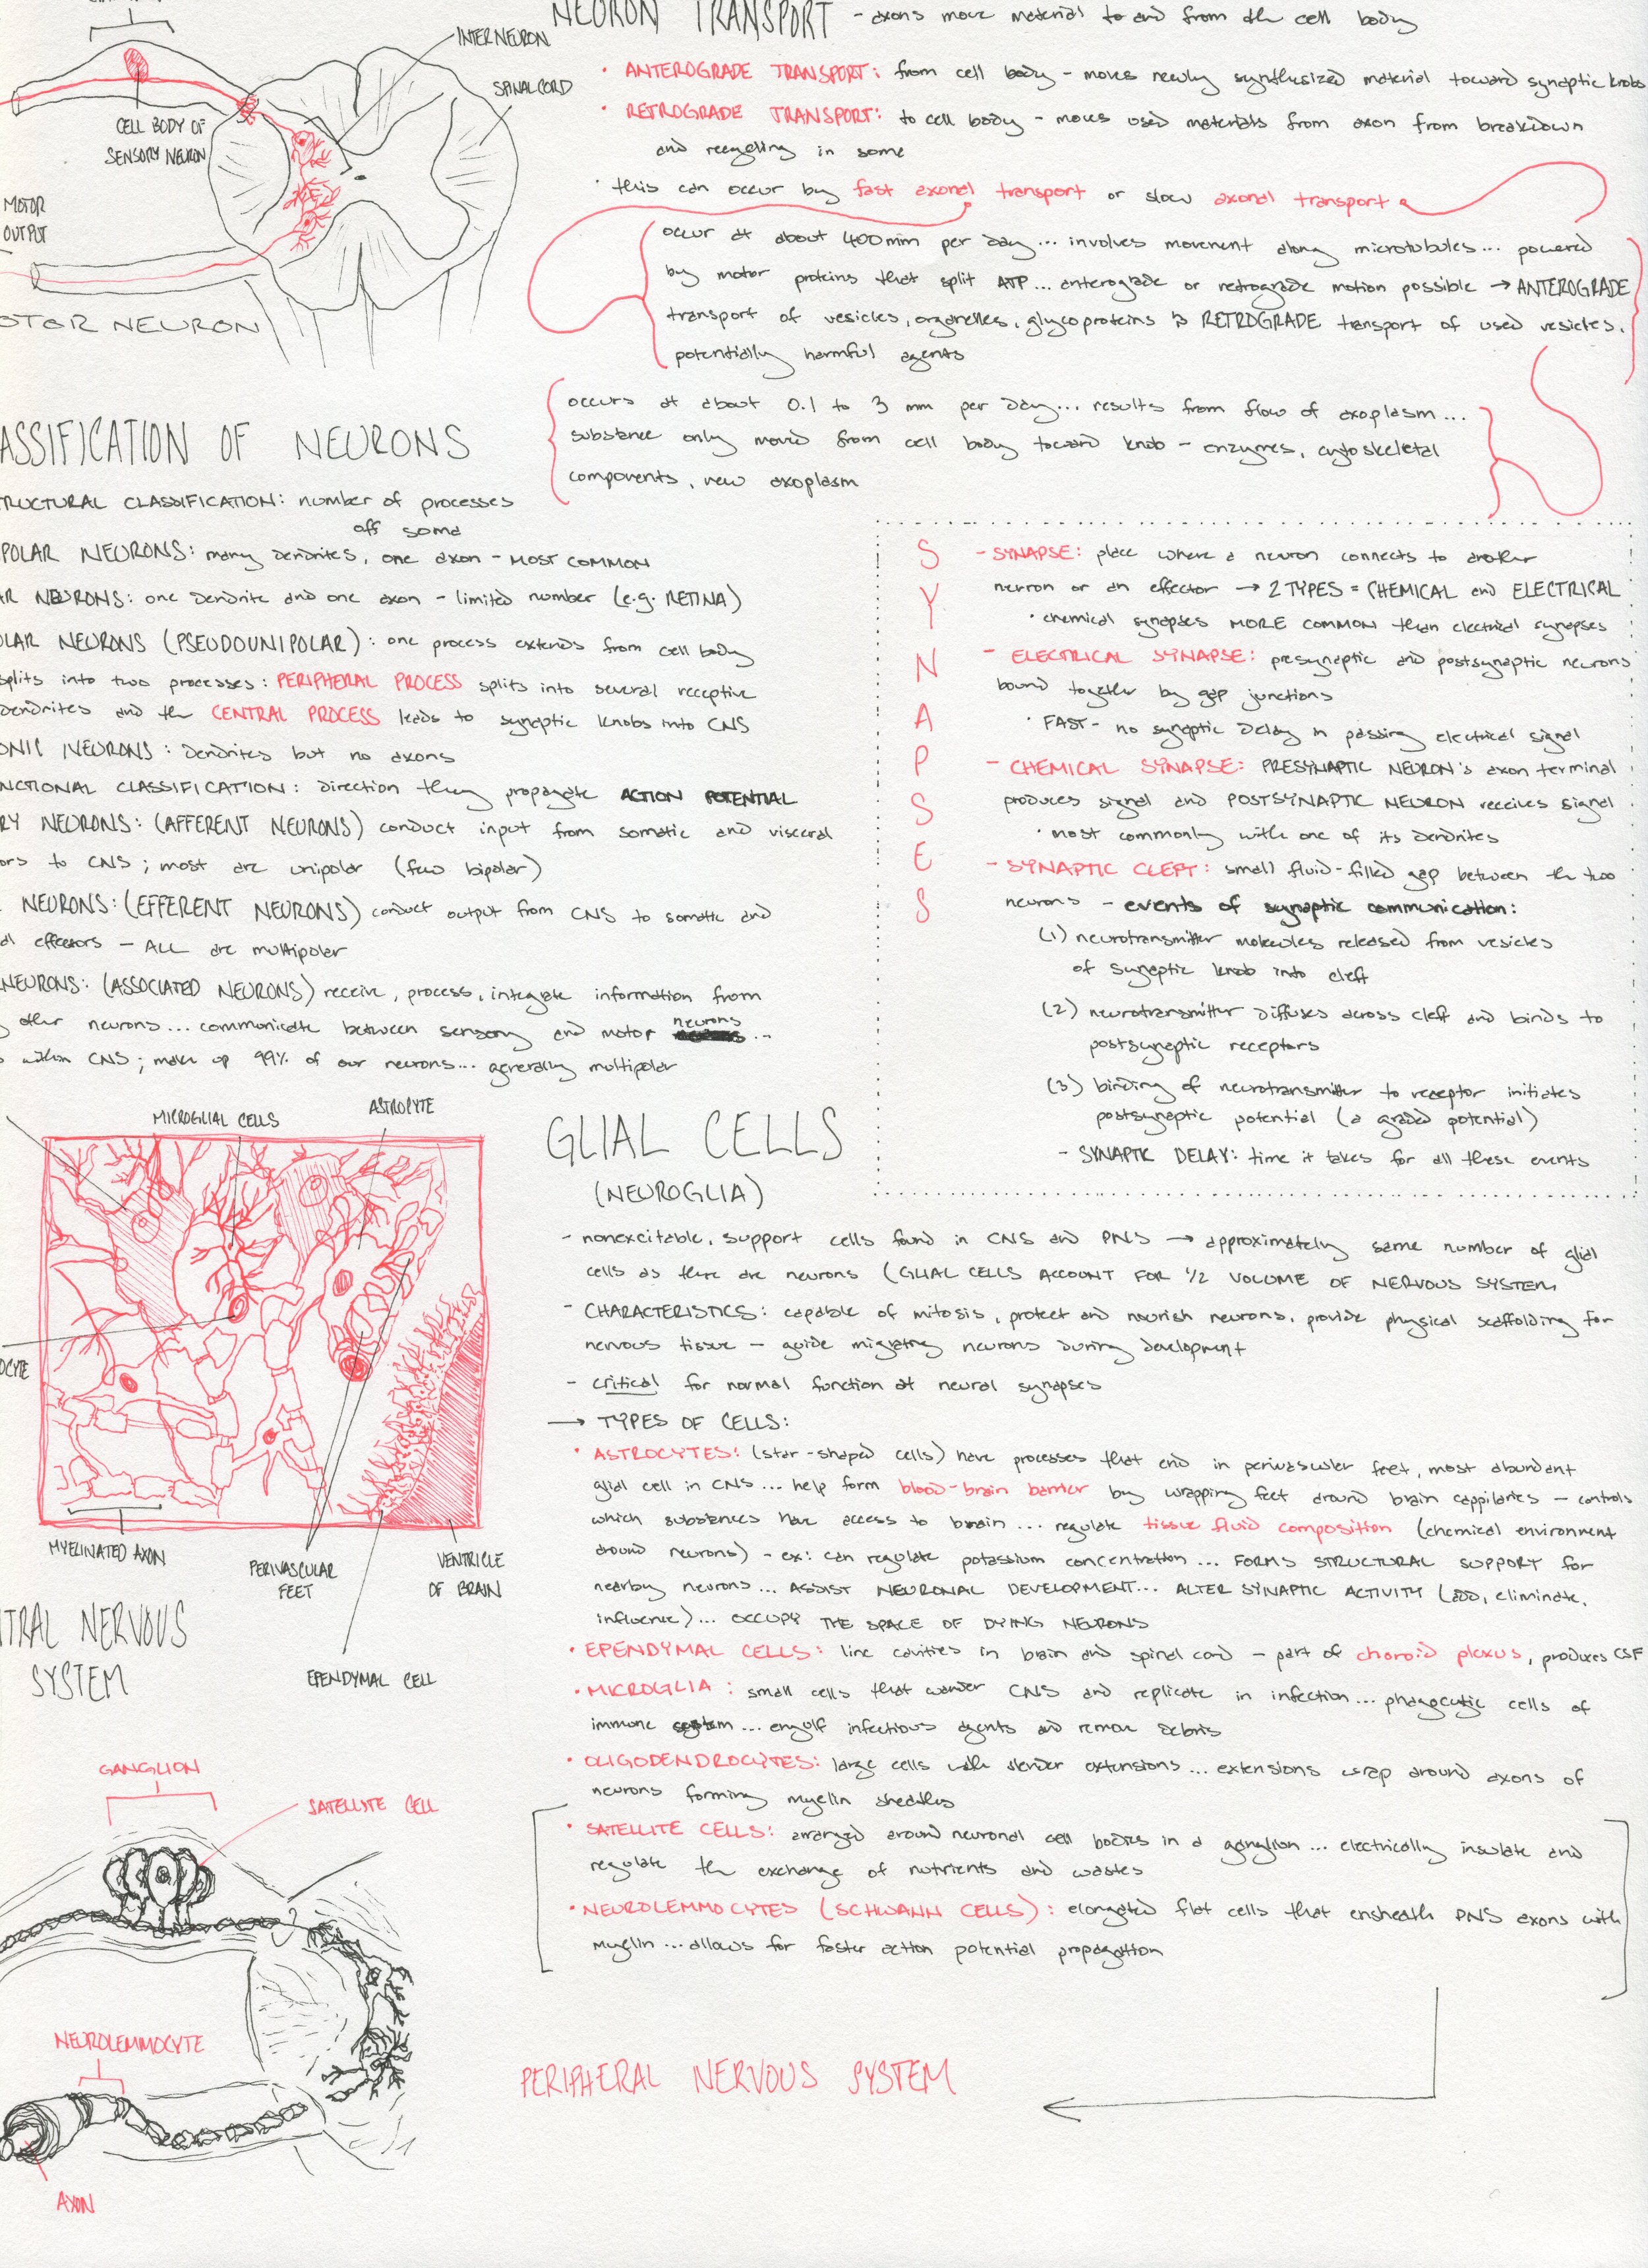 NEURON TRANSPORT - axons move material to and from the cell body
• ANTEROGRADE TRANSPORT: from cell body - moves newly synthesized material toward synaptic knobs
• RETROGRADE TRANSPORT: to cell body - moves used materials from axon from breakdown
and recycling in soma
• this can occur by fast axonal transport or slow axonal transport
occur at about 400mm per day... involves movement along microtubules... powered
by motor proteins that split ATP... anterograde or retrograde motion possible → ANTEROGRADE
transport of vesicles, organelles, glycoproteins & RETROGRADE transport of used vesicles,
potentially harmful agents
occurs at about 0.1 to 3 mm per day... results from flow of axoplasm...
substance only moved from cell body toward knob - enzymes, cytoskeletal
components, new axoplasm
INTERNEURON
SPINAL CORD
CELL BODY OF
SENSORY NEURON
MOTOR
OUTPUT
OTOR NEURON
ASSIFICATION OF NEURONS
TRUCTURAL CLASSIFICATION: number of processes
off soma
POLAR NEURONS: many dendrites, one axon - MOST COMMON
AR NEURONS: one dendrite and one axon - limited number (e.g. RETINA)
OLAR NEURONS (PSEUDOUNIPOLAR): one process extends from cell body
splits into two processes: PERIPHERAL PROCESS splits into several receptive
dendrites and the CENTRAL PROCESS leads to synaptic knobs into CNS
ONIC NEURONS: dendrites but no axons
NCTIONAL CLASSIFICATION: direction they propagate ACTION POTENTIAL
RY NEURONS: (AFFERENT NEURONS) conduct input from somatic and visceral
ors to CNS; most are unipolar (few bipolar)
NEURONS: (EFFERENT NEURONS) conduct output from CNS to somatic and
al effectors - ALL are multipolar
NEURONS: (ASSOCIATED NEURONS) receive, process, integrate information from
other neurons... communicate between sensory and motor neurons...
within CNS; make up 99% of our neurons... generally multipolar
SYNAPSES
- SYNAPSE: place where a neuron connects to another
neuron or an effector → 2 TYPES = CHEMICAL and ELECTRICAL
• chemical synapses MORE COMMON than electrical synapses
- ELECTRICAL SYNAPSE: presynaptic and postsynaptic neurons
bound together by gap junctions
• FAST - no synaptic delay in passing electrical signal
- CHEMICAL SYNAPSE: PRESYNAPTIC NEURON's axon terminal
produces signal and POSTSYNAPTIC NEURON receives signal
• most commonly with one of its dendrites
- SYNAPTIC CLEFT: small fluid-filled gap between the two
neurons - events of synaptic communication:
(1) neurotransmitter molecules released from vesicles
of synaptic knob into cleft
(2) neurotransmitter diffuses across cleft and binds to
postsynaptic receptors
(3) binding of neurotransmitter to receptor initiates
postsynaptic potential (a graded potential)
- SYNAPTIC DELAY: time it takes for all these events
MICROGLIAL CELLS
ASTROCYTE
OCYTE
MYELINATED AXON
PERIVASCULAR
FEET
VENTRICLE
OF BRAIN
EPENDYMAL CELL
TRAL NERVOUS
SYSTEM
GLIAL CELLS
(NEUROGLIA)
- nonexcitable, support cells found in CNS and PNS → approximately same number of glial
cells as there are neurons (GLIAL CELLS ACCOUNT FOR 1/2 VOLUME OF NERVOUS SYSTEM
- CHARACTERISTICS: capable of mitosis, protect and nourish neurons, provide physical scaffolding for
nervous tissue - guide migrating neurons during development
- critical for normal function at neural synapses
→ TYPES OF CELLS:
• ASTROCYTES: (star-shaped cells) have processes that end in perivascular feet, most abundant
glial cell in CNS... help form blood-brain barrier by wrapping feet around brain cappilaries - controls
which substances have access to brain... regulate tissue fluid composition (chemical environment
around neurons) - ex: can regulate potassium concentration... FORMS STRUCTURAL SUPPORT for
nearby neurons... ASSIST NEURONAL DEVELOPMENT... ALTER SYNAPTIC ACTIVITY (ADD, eliminate,
influence)... OCCUPY THE SPACE OF DYING NEURONS
• EPENDYMAL CELLS: line cavities in brain and spinal cord - part of choroid plexus, produces CSF
• MICROGLIA: small cells that wander CNS and replicate in infection... phagocytic cells of
immune system... engulf infectious agents and remove debris
• OLIGODENDROCYTES: large cells with slender extensions... extensions wrap around axons of
neurons forming myelin sheaths
• SATELLITE CELLS: arranged around neuronal cell bodies in a ganglion... electrically insulate and
regulate the exchange of nutrients and wastes
• NEUROLEMMOCYTES (SCHWANN CELLS): elongated flat cells that ensheath PNS axons with
myelin... allows for faster action potential propagation
GANGLION
SATELLITE CELL
NEUROLEMMOCYTE
AXON
PERIPHERAL NERVOUS SYSTEM